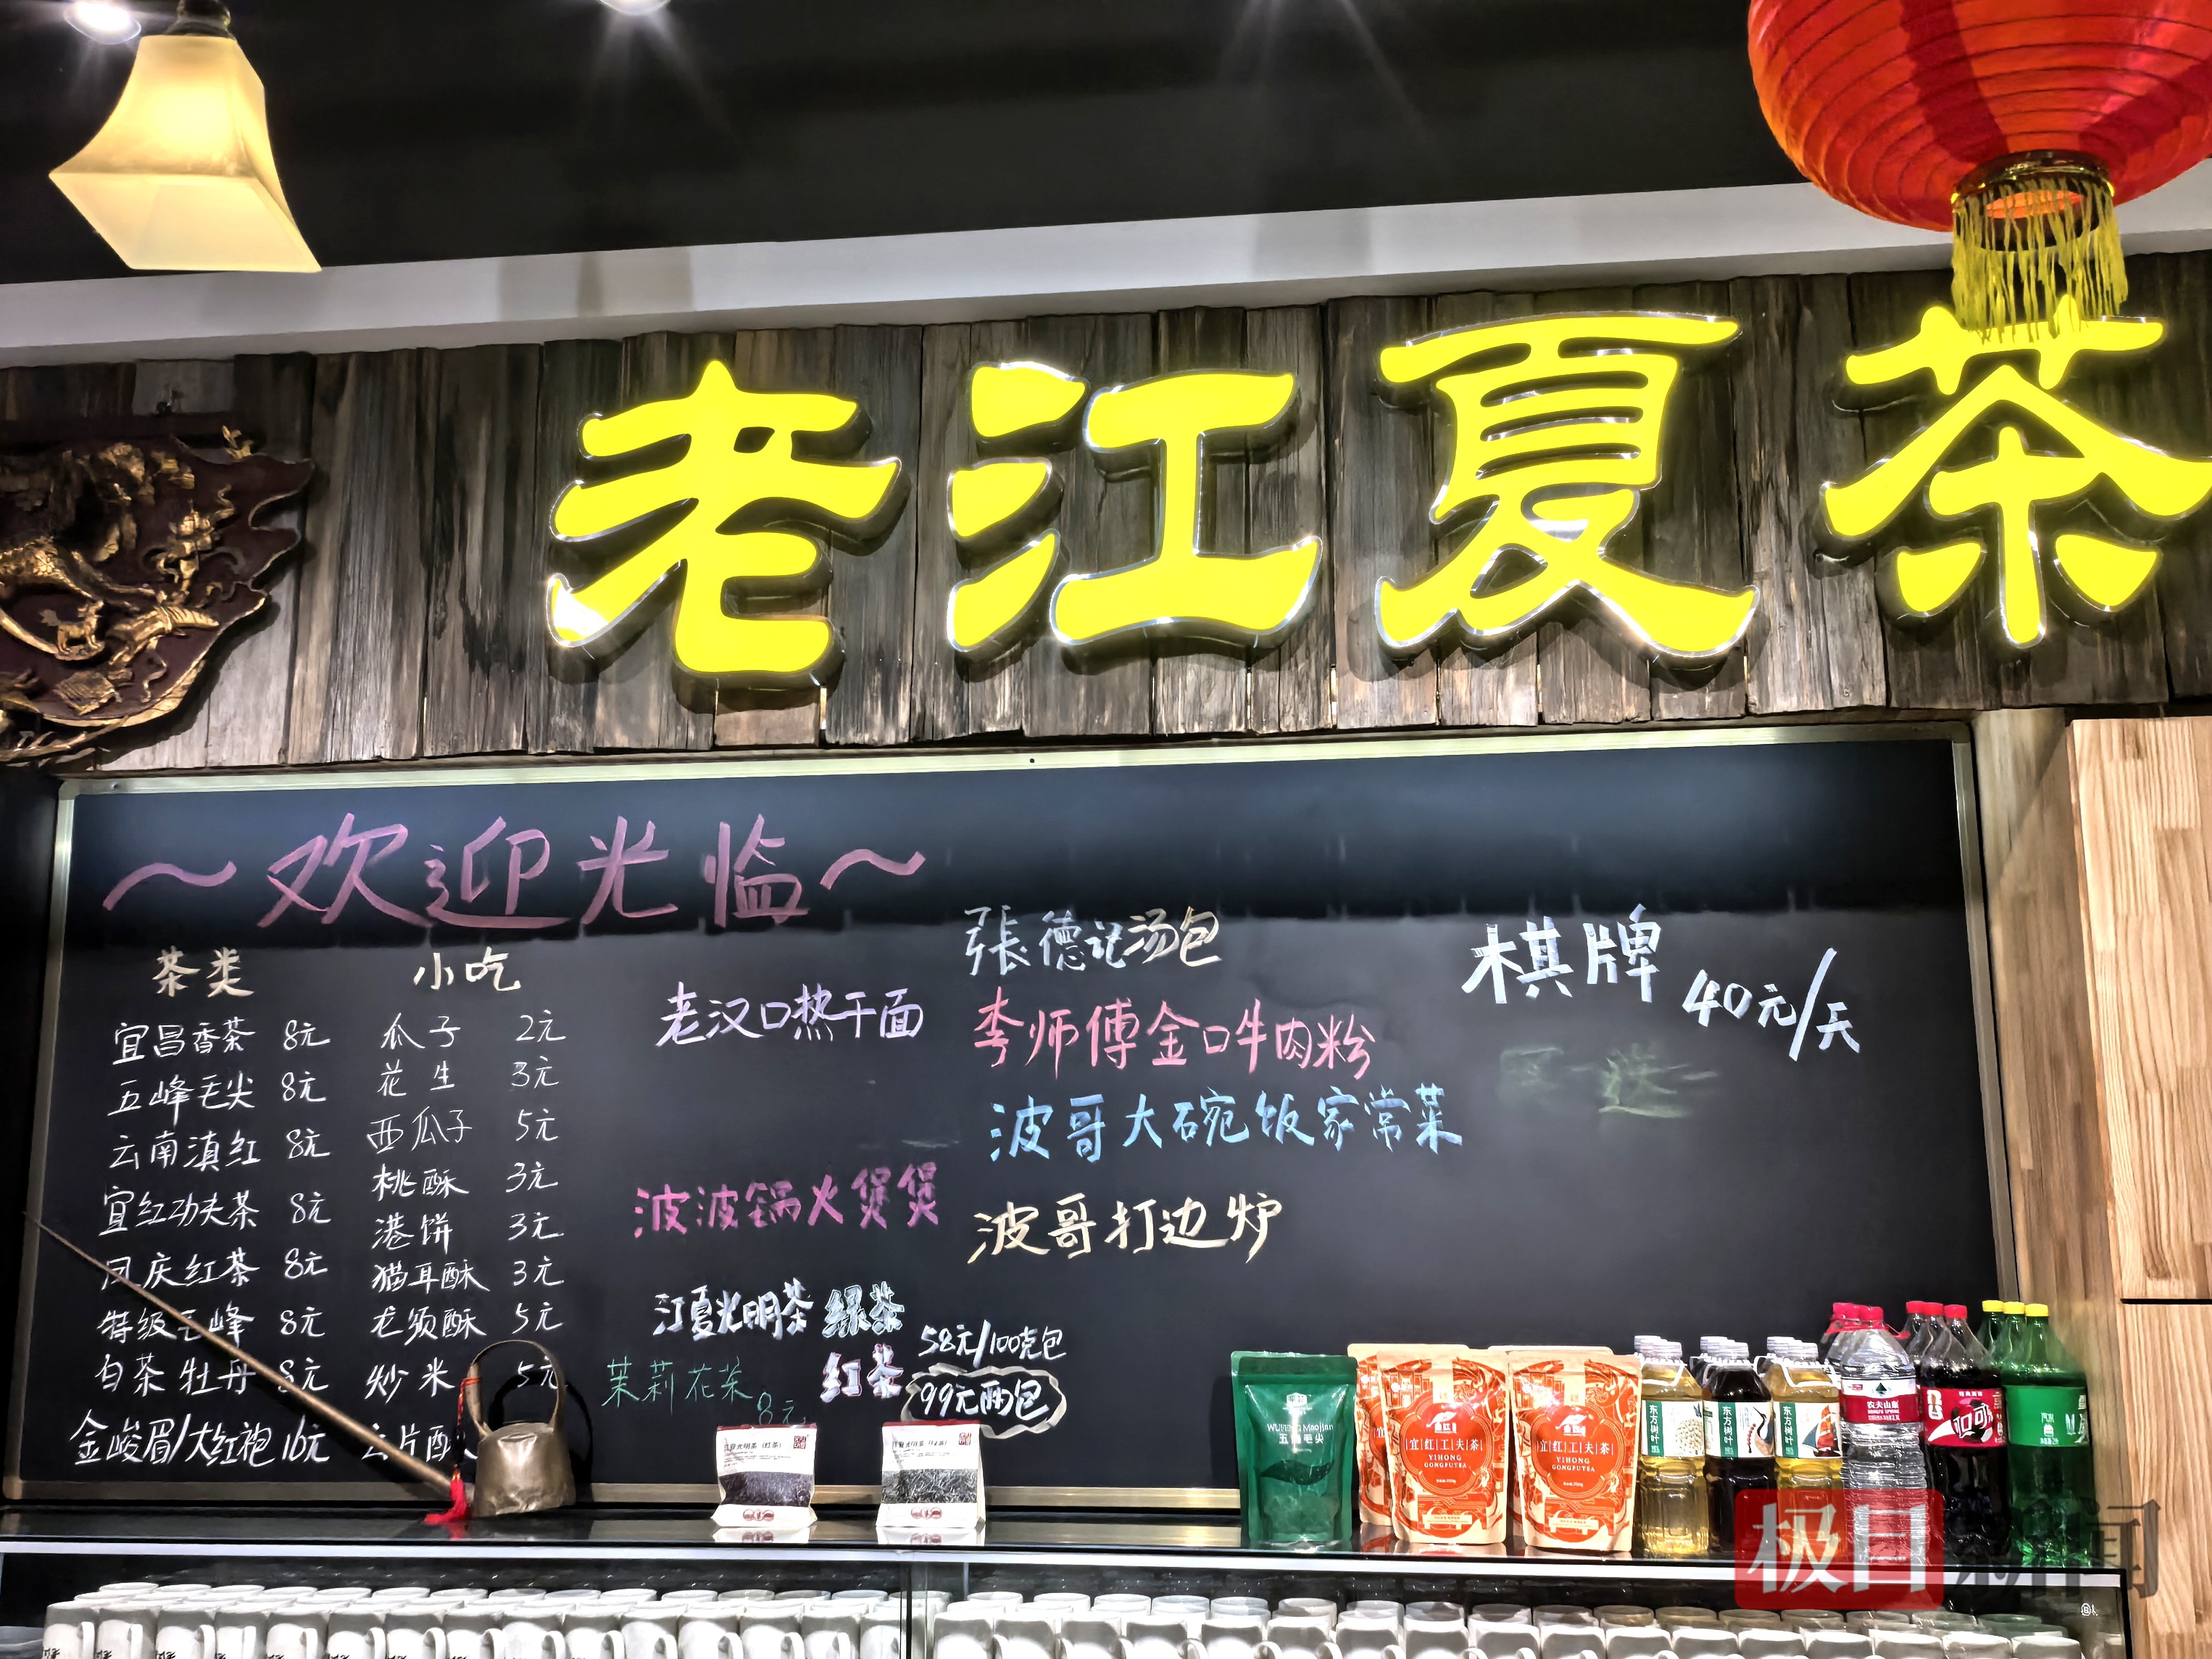 老江夏茶
～欢迎光临～
茶类
宜昌香茶 8元
五峰毛尖 8元
云南滇红 8元
宜红功夫茶 8元
凤庆红茶 8元
特级毛峰 8元
白茶牡丹 8元
金峻眉/大红袍 16元
小吃
瓜子 2元
花生 3元
西瓜子 5元
桃酥 3元
港饼 3元
猫耳酥 3元
龙须酥 5元
炒米 5元
云片酥
老汉口热干面
波波锅火煲煲
江夏光明茶 绿茶
红茶
58元/100克包
99元两包
茉莉花茶 8元
張德记汤包
李师傅金口牛肉粉
波哥大碗饭家常菜
波哥打边炉
棋牌 40元/天
WUFENG Maojian
五峰毛尖
宜红工夫茶
YIHONG
GONGFUTEA
宜红工夫茶
YIHONG
GONGFUTEA
东方树叶
东方树叶
东方树叶
农夫山泉
极目新闻